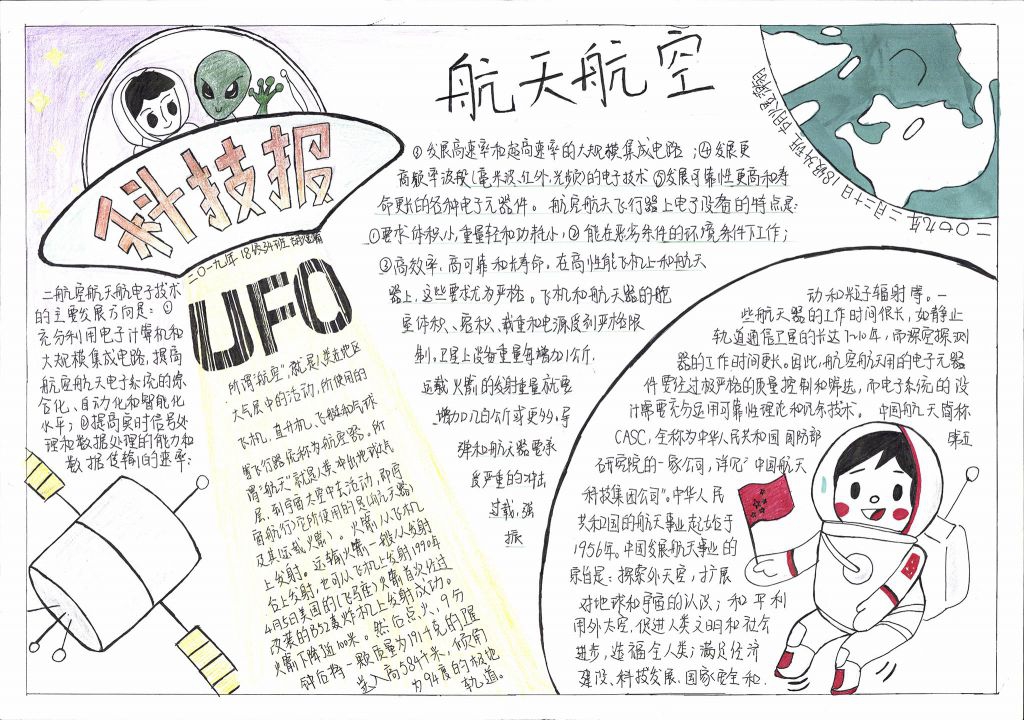 航天航空
科技报
二〇一九年18级34班
UFO
所谓"航空",就是人类在地区
大气层中的活动,所使用的
飞机、直升机、飞艇和气球
等飞行器统称为航空器。所
谓"航天"就是人类冲出地球大气
层,到宇宙太空中去活动,即宇
宙航行,它所使用的是(航天器)
及其运载火箭)。火箭从飞机
上发射。运输火箭一般从发射
台上发射,也可从飞机上发射1990年
4月5日美国的(飞马座)火箭首次经过
改装的B52轰炸机上发射成功。
火箭下降近100米。然后点火、9分
钟后将一颗质量为191千克的卫星
送入高584千米、倾角
为94度的极地
轨道。
二航空航天航电子技术
的主要发展方向是:①
充分利用电子计算机和
大规模集成电路,提高
航空航天电子系统的综
合化、自动化和智能化
水平;②提高实时信号处
理和数据处理的能力和
数据传输的速率;
③发展高速率和超高速率的大规模集成电路;④发展更
高频率波段(毫米波、红外、光频)的电子技术⑤发展可靠性更高和寿
命更长的各种电子元器件。航空航天飞行器上电子设备的特点是:
①要求体积小,重量轻和功耗小;②能在恶劣条件的环境条件下工作;
③高效率、高可靠和长寿命。在高性能飞机上和航天
器上,这些要求尤为严格。飞机和航天器的舱
室体积、容积、载重和电源受到严格限
制,卫星上设备重量每增加1公斤,
运载火箭的发射重量就要
增加几百公斤或更多。导
弹和航天器要承
受严重的冲击
过载、强
振
动和粒子辐射等。一
些航天器的工作时间很长,如静止
轨道通信卫星的长达7~10年,而深空探测
器的工作时间更长。因此,航空航天用的电子元器
件要经过极严格的质量控制和筛选,而电子系统的设
计需要充分运用可靠性理论和冗余技术。中国航天简称
CASC,全称为中华人民共和国国防部第五
研究院的一家公司,详见"中国航天
科技集团公司"。中华人民
共和国的航天事业起始于
1956年。中国发展航天事业的
宗旨是:探索外太空,扩展
对地球和宇宙的认识;和平利
用外太空,促进人类文明和社会
进步,造福全人类;满足经济
建设、科技发展、国家安全和
二〇一九年二月二十日18级34班